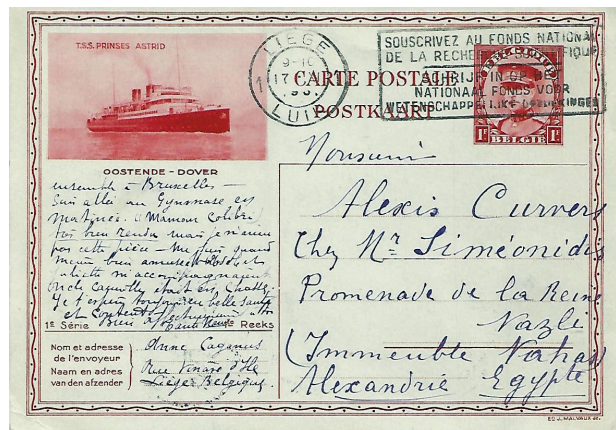 T.S.S. PRINSES ASTRID
OOSTENDE - DOVER
LIEGE
9-10
17
LUIK
SOUSCRIVEZ AU FONDS NATIONAL
DE LA RECHERCHE SCIENTIFIQUE
SCHRIJF IN OP HET
NATIONAAL FONDS VOOR
WETENSCHAPPELIJKE
CARTE POSTALE
POSTKAART
BELGIE
1F
1F
ensemble à Bruxelles -
Suis allée au Gymnase en
matinée (Maman Colibri)
très bien rendu mais je n'aime
pas cette pièce - me suis quand
même bien amusée
Juliette m'accompagnaient
oncle
Je t'espère toujours en belle santé
et content
Bien à toi
1e Série
Reeks
Nom et adresse
de l'envoyeur
Naam en adres
van den afzender
Anne
Rue Vinâve d'Ile
Liège Belgique
Monsieur
Alexis Curvers
Chez Mr Siméonidis
Promenade de la Reine
Nazli
(Immeuble Nahas)
Alexandrie Egypte
ED. J. MALVAUX